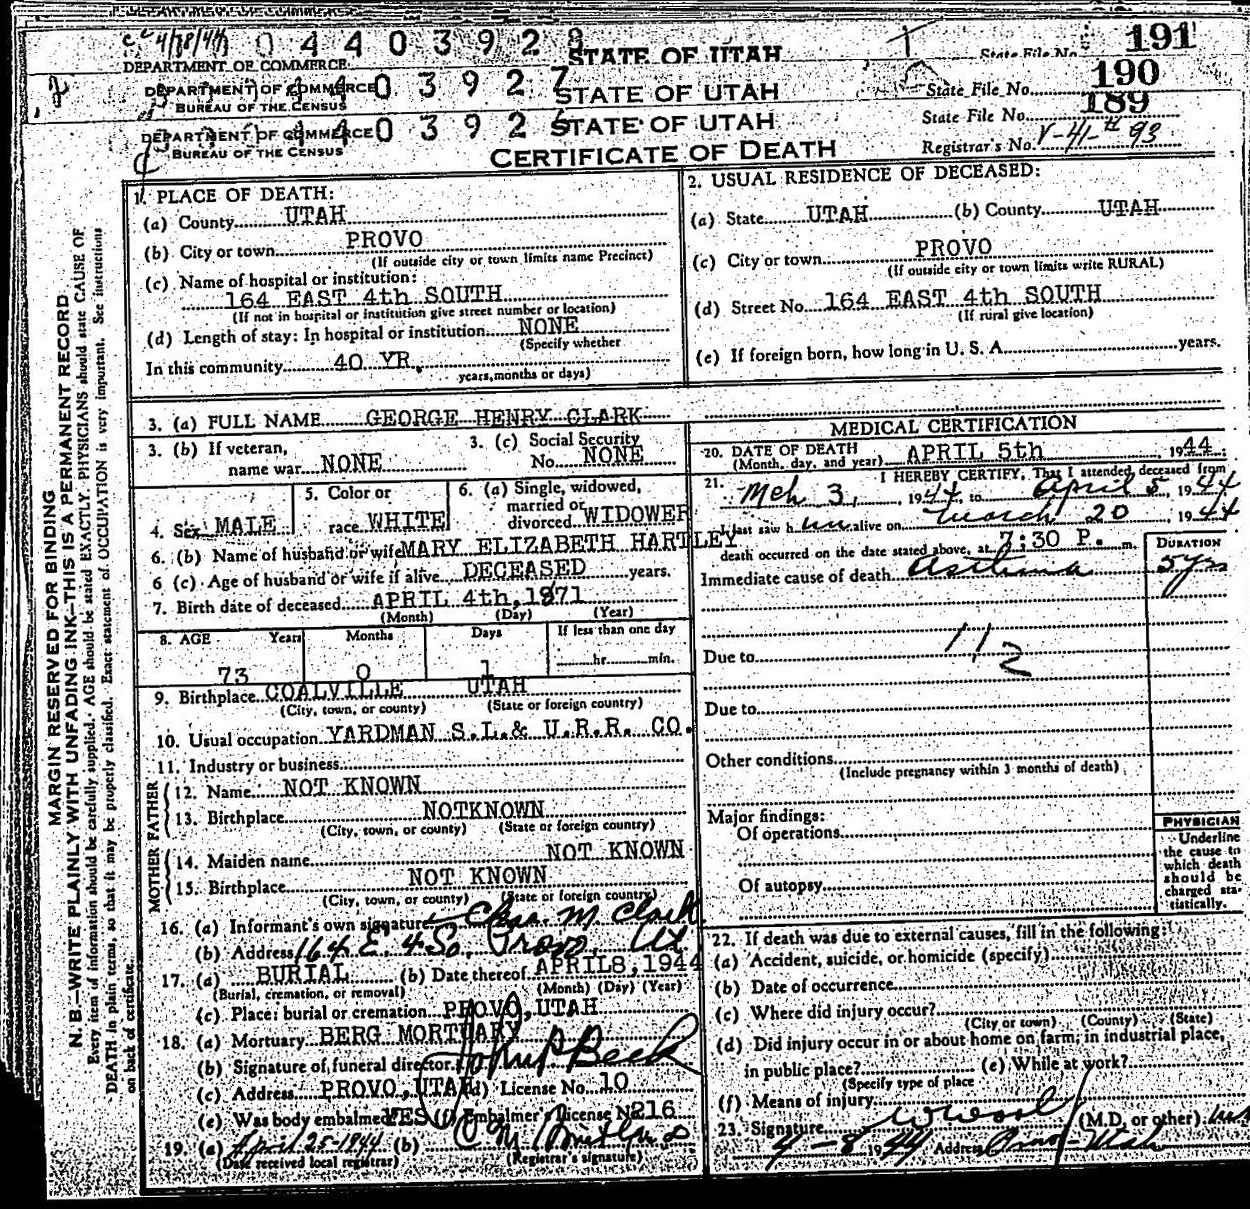 c c 4/18/44 0 4 4 0 3 9 2 8 STATE OF UTAH State File No. 191
DEPARTMENT OF COMMERCE
DEPARTMENT OF COMMERCE 0 3 9 2 7 STATE OF UTAH State File No. 190
BUREAU OF THE CENSUS
DEPARTMENT OF COMMERCE 0 3 9 2 6 STATE OF UTAH State File No. 189
BUREAU OF THE CENSUS CERTIFICATE OF DEATH Registrar's No. V-41-th 93
MARGIN RESERVED FOR BINDING
N. B.—WRITE PLAINLY WITH UNFADING INK—THIS IS A PERMANENT RECORD
Every item of information should be carefully supplied. AGE should be stated EXACTLY. PHYSICIANS should state CAUSE OF
DEATH in plain terms, so that it may be properly classified. Exact statement of OCCUPATION is very important. See instructions
on back of certificate.
1. PLACE OF DEATH:
(a) County UTAH
(b) City or town PROVO
(If outside city or town limits name Precinct)
(c) Name of hospital or institution:
164 EAST 4th SOUTH
(If not in hospital or institution give street number or location)
(d) Length of stay: In hospital or institution NONE
(Specify whether
In this community 40 YR.
years, months or days)
2. USUAL RESIDENCE OF DECEASED:
(a) State UTAH (b) County UTAH
(c) City or town PROVO
(If outside city or town limits write RURAL)
(d) Street No. 164 EAST 4th SOUTH
(If rural give location)
(e) If foreign born, how long in U. S. A. years.
3. (a) FULL NAME GEORGE HENRY CLARK
3. (b) If veteran, name war NONE
3. (c) Social Security No. NONE
4. Sex MALE
5. Color or race WHITE
6. (a) Single, widowed, married or divorced WIDOWER
6. (b) Name of husband or wife MARY ELIZABETH HARTLEY
6 (c) Age of husband or wife if alive DECEASED years.
7. Birth date of deceased APRIL 4th, 1871
(Month) (Day) (Year)
8. AGE Years Months Days If less than one day
73 0 1 hr. min.
9. Birthplace COALVILLE UTAH
(City, town, or county) (State or foreign country)
10. Usual occupation YARDMAN S.L.& U.R.R. CO.
11. Industry or business
FATHER
12. Name NOT KNOWN
13. Birthplace NOTKNOWN
(City, town, or county) (State or foreign country)
MOTHER
14. Maiden name NOT KNOWN
15. Birthplace NOT KNOWN
(City, town, or county) (State or foreign country)
16. (a) Informant's own signature Chas. M Clark
(b) Address 164 E. 4 So. Provo, Ut
17. (a) BURIAL (b) Date thereof APRIL8,1944
(Burial, cremation, or removal) (Month) (Day) (Year)
(c) Place: burial or cremation PROVO,UTAH
18. (a) Mortuary BERG MORTUARY
(b) Signature of funeral director
(c) Address PROVO,UTAH (d) License No. 10
(e) Was body embalmed YES (f) Embalmer's License No 216
19. (a) April 25-1944 (b)
(Date received local registrar) (Registrar's signature)
MEDICAL CERTIFICATION
20. DATE OF DEATH
(Month, day, and year) APRIL 5th 1944
21. I HEREBY CERTIFY, That I attended deceased from
Mch 3, 1944, to April 5, 1944
I last saw h im alive on March 20 1944
death occurred on the date stated above, at 7:30 P. m. DURATION
Immediate cause of death Asthma 5 yrs
112
Due to
Due to
Other conditions
(Include pregnancy within 3 months of death)
Major findings:
Of operations
Of autopsy
PHYSICIAN
Underline
the cause to
which death
should be
charged sta-
tistically.
22. If death was due to external causes, fill in the following:
(a) Accident, suicide, or homicide (specify)
(b) Date of occurrence
(c) Where did injury occur?
(City or town) (County) (State)
(d) Did injury occur in or about home on farm, in industrial place,
in public place? (e) While at work?
(Specify type of place
(f) Means of injury
23. Signature (M.D. or other)
4-8 1944 Address Provo Utah